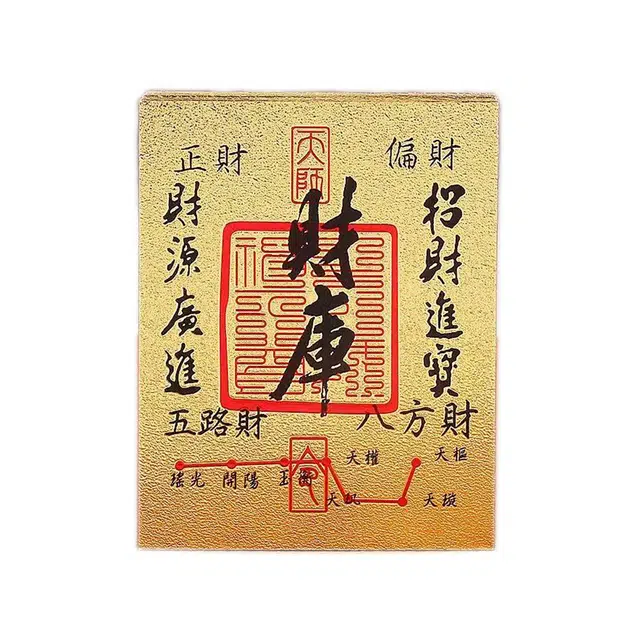 天師
偏財
正財
招財進寶
財庫
財源廣進
八方財
五路財
令
瑤光
開陽
玉衡
天權
天璣
天璇
天樞